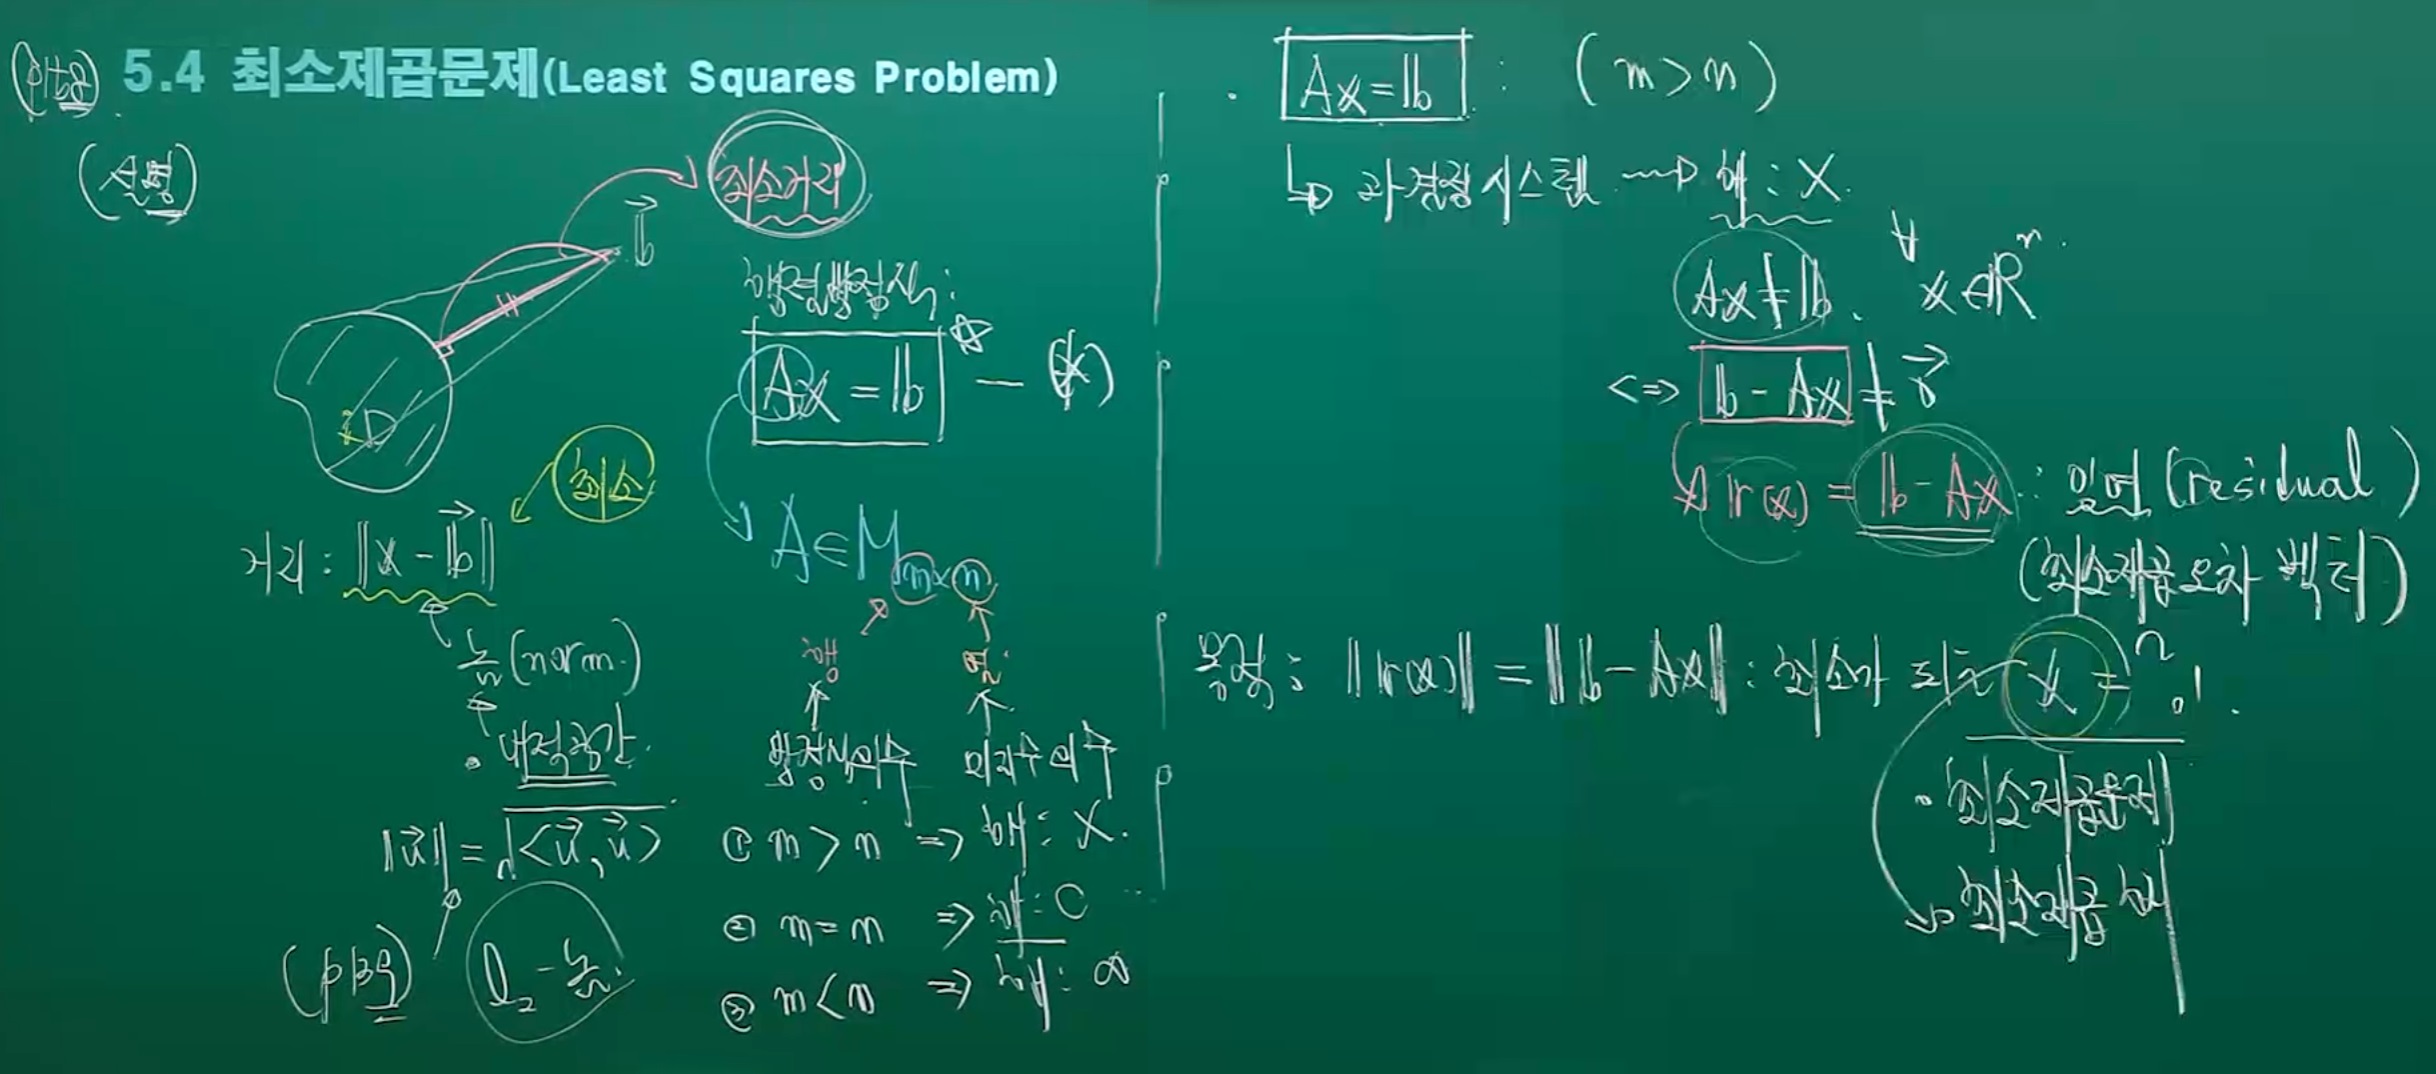 5.4 최소제곱문제(Least Squares Problem)
(선형)
최소거리
b
행렬방정식:
Ax = b — (*)
D
최소
거리 : ||x - b||
노름 (norm.)
• 내적공간.
||u|| = √<u, u>
l₂ - 노름.
A ∈ M m×n
행 열
방정식의 수 미지수의 수
① m > n ⇒ 해 : X.
② m = n ⇒ 해 : O
③ m < n ⇒ 해 : ∞
• Ax = b : (m > n)
↳ 과결정시스템 → 해 : X.
Ax ≠ b. ∀x ∈ Rⁿ.
<=> b - Ax ≠ 0
r(x) = b - Ax : 잉여 (residual)
(최소제곱오차 벡터)
목적 : ||r(x)|| = ||b - Ax|| : 최소가 되는 x = ?
• 최소제곱문제
최소제곱해